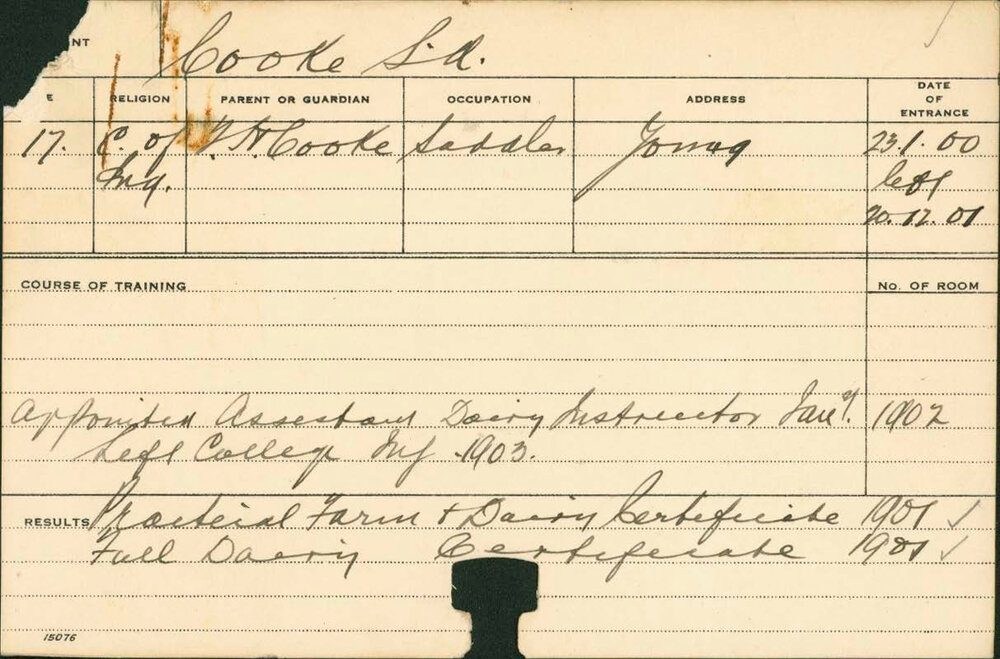 NT
Cooke S.A.
E RELIGION PARENT OR GUARDIAN OCCUPATION ADDRESS DATE OF ENTRANCE
17. C. of W. H Cooke Saddler Young 23.1.00
Eng. left
20.12.01
COURSE OF TRAINING No. OF ROOM
Appointed Assistant Dairy Instructor Jany. 1902
Left College 1903.
RESULTS Practical Farm + Dairy Certificate 1901 ✓
Full Dairy Certificate 1901 ✓
15076